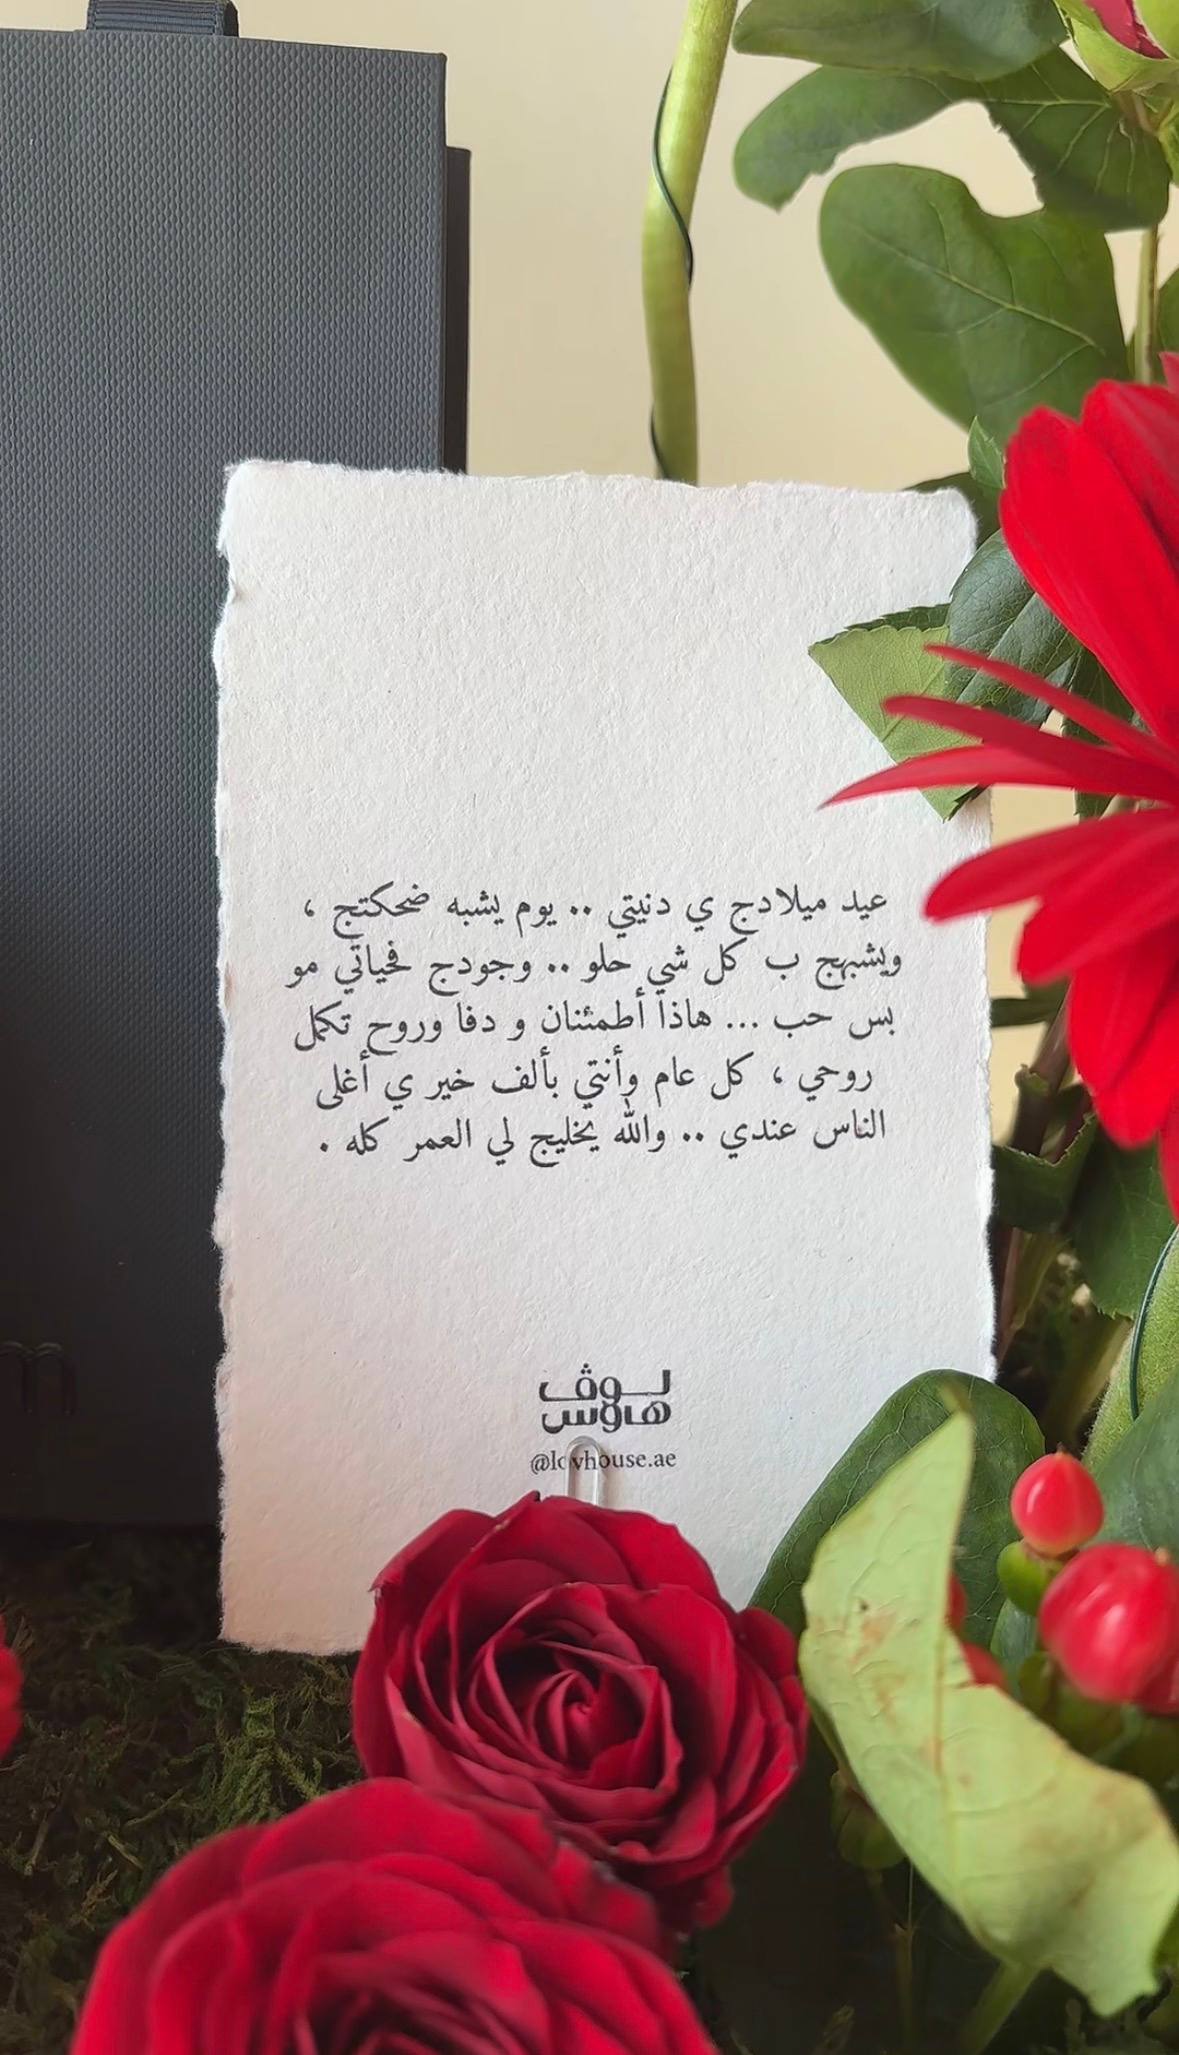 عيد ميلادج ي دنيتي .. يوم يشبه ضحكتج ،
ويشبهج ب كل شي حلو .. وجودج فحياتي مو
بس حب ... هاذا أطمئنان و دفا وروح تكمل
روحي ، كل عام وأنتي بألف خير ي أغلى
الناس عندي .. والله يخليج لي العمر كله .
لوڤ
هاوس
@lovhouse.ae